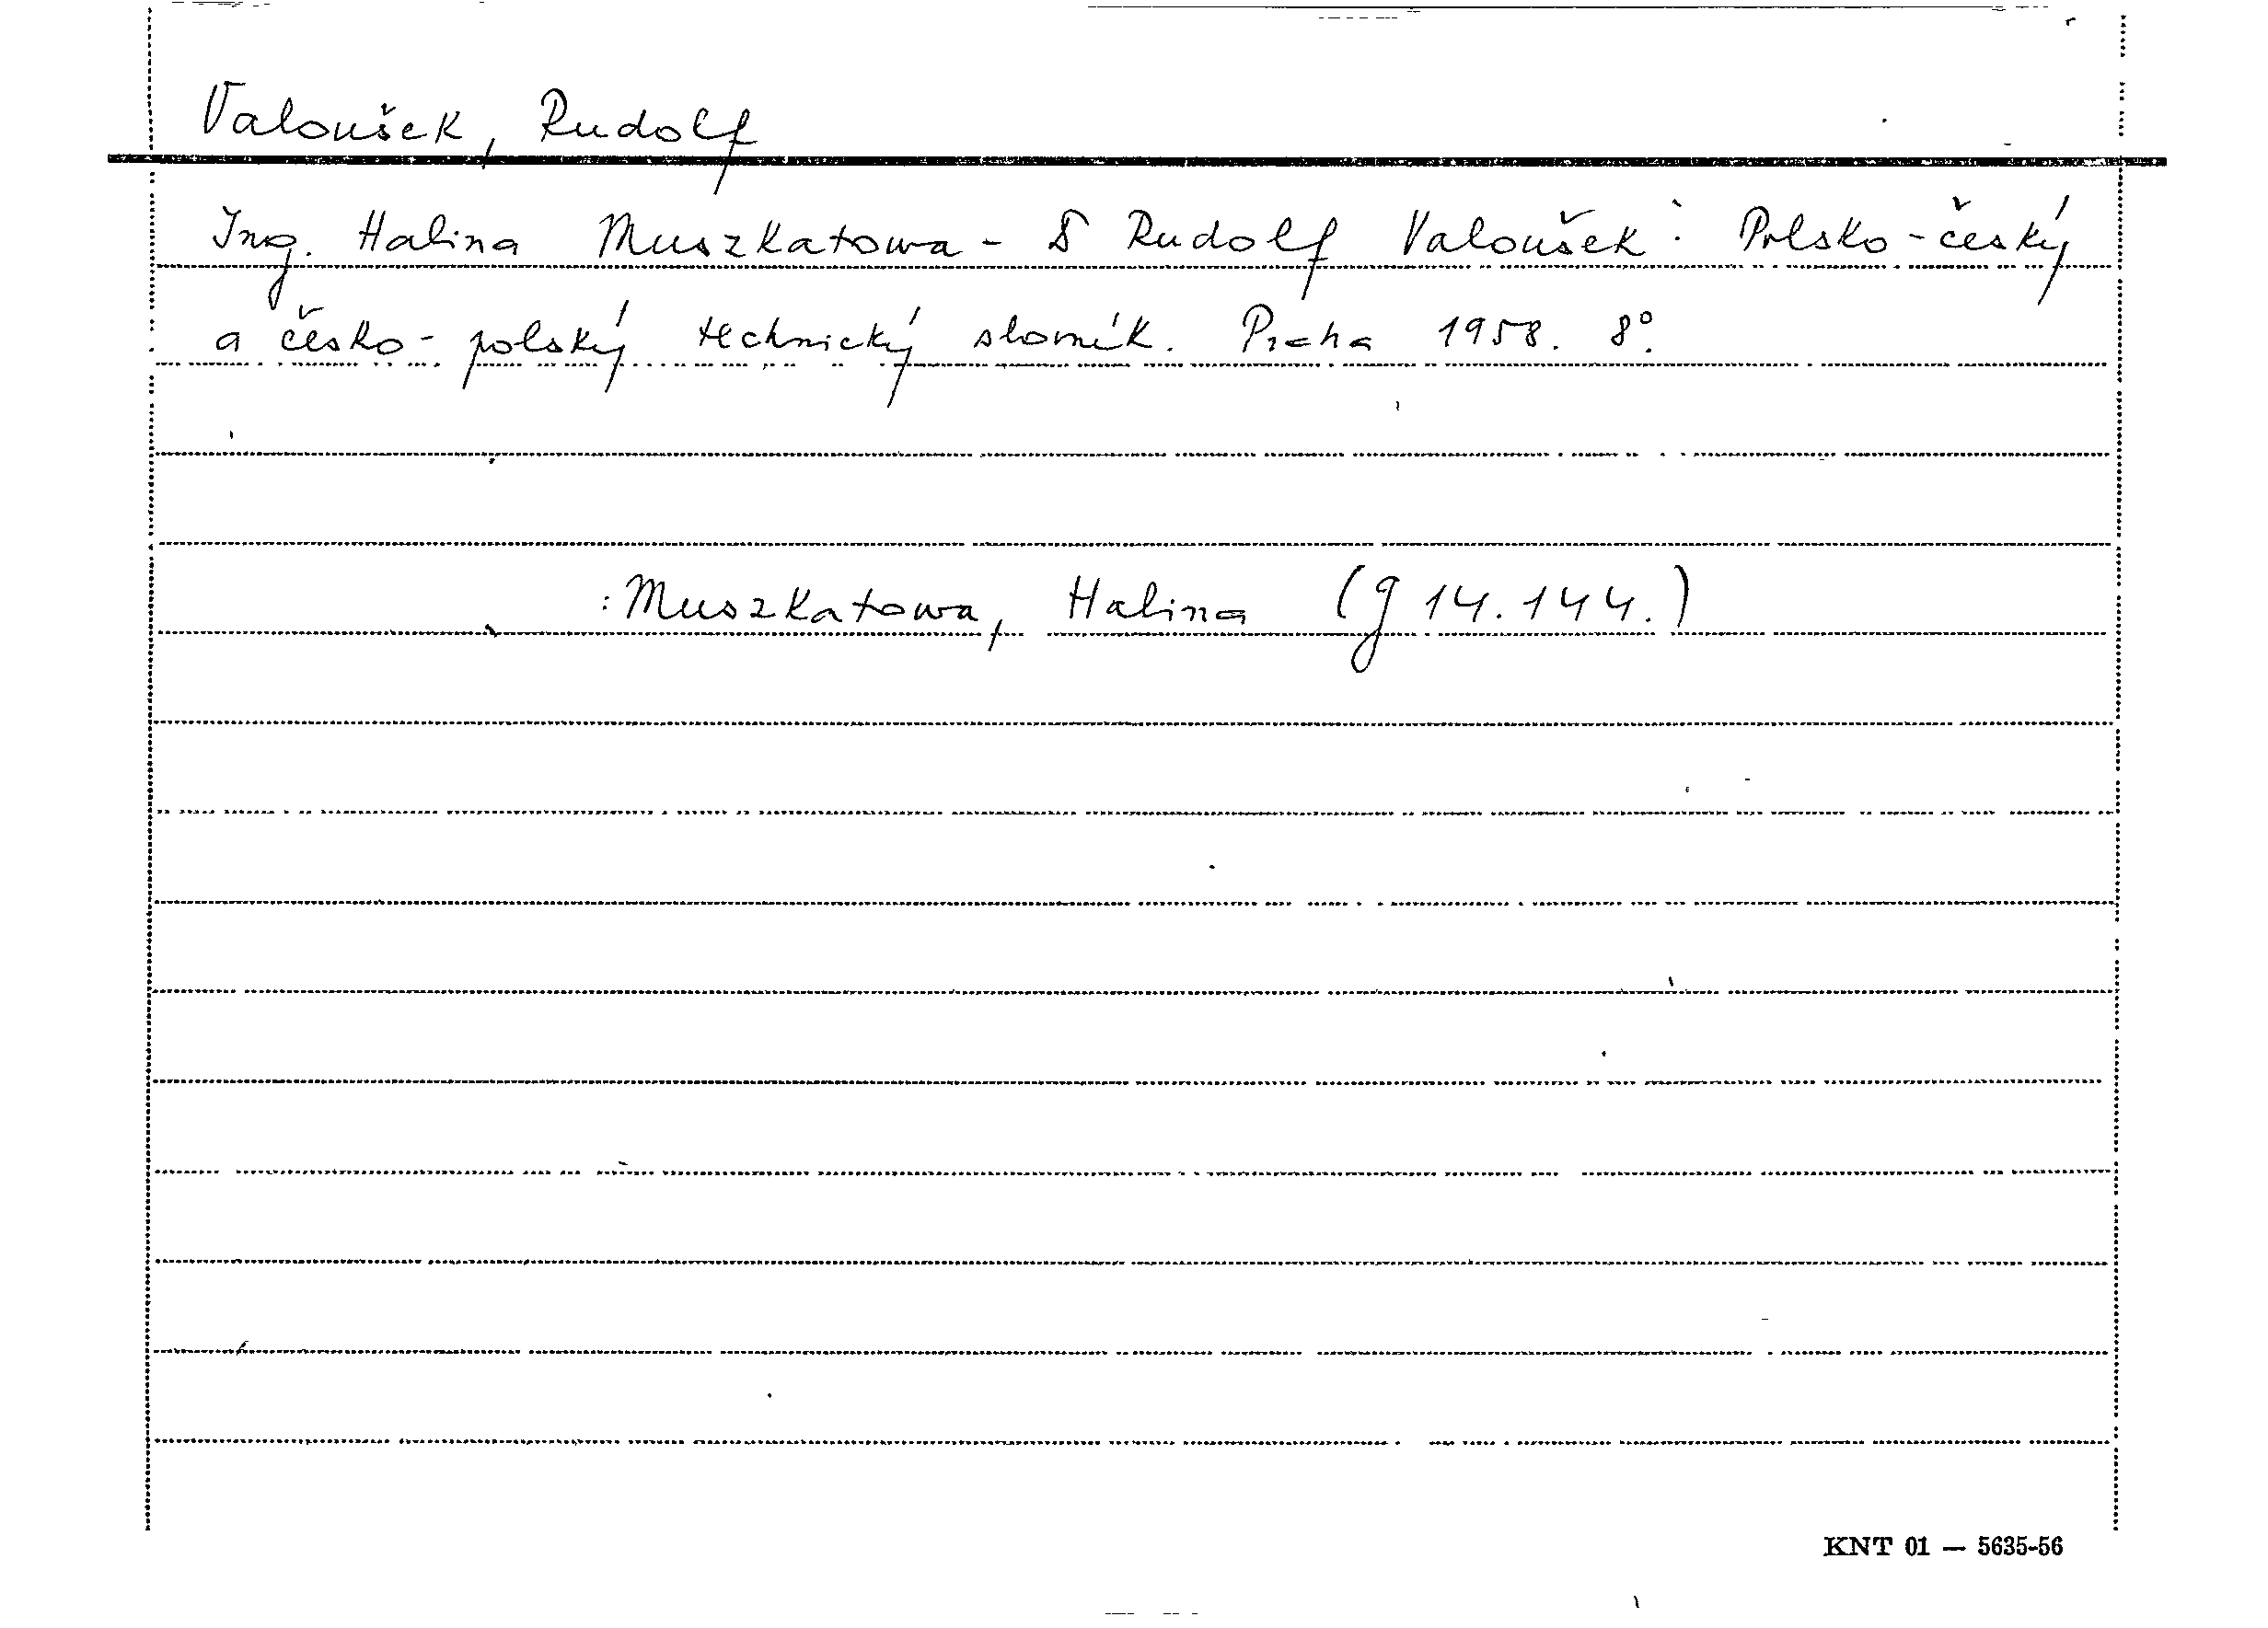 Valoušek, Rudolf
Ing. Halina Muszkatowa - Rudolf Valoušek: Polsko-český
a česko-polský technický slovník. Praha 1958. 8°.
:Muszkatowa, Halina (g 14.144.)
KNT 01 — 5635-56